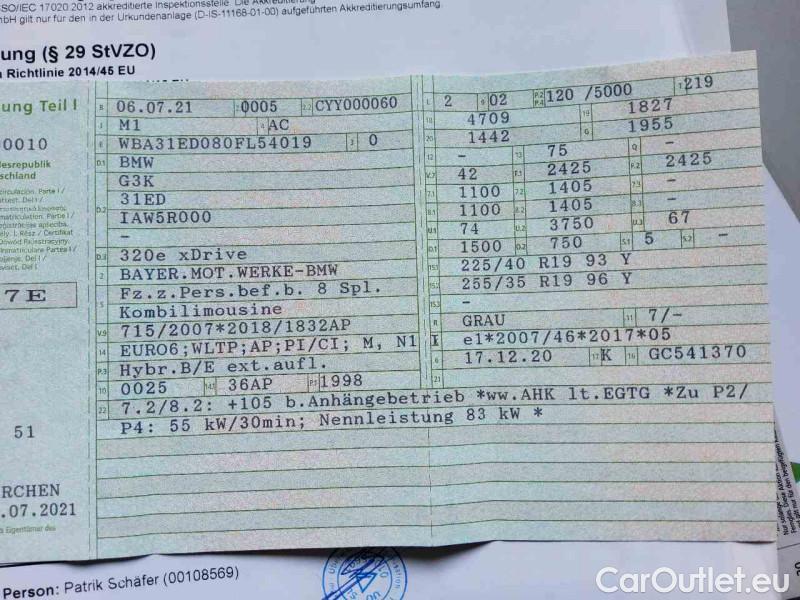 SO/IEC 17020:2012 akkreditierte Inspektionsstelle. Die Akkreditierung
bH gilt nur für den in der Urkundenanlage (D-IS-11168-01-00) aufgeführten Akkreditierungsumfang.
ung (§ 29 StVZO)
n Richtlinie 2014/45 EU
ung Teil I
0010
desrepublik
schland
7E
51
RCHEN
.07.2021
B 06.07.21 0005 2.2 CYY000060
J M1 4 AC
E WBA31ED080FL54019 3 0
D.1 BMW
G3K
D.2 31ED
IAW5R000
–
D.3 320e xDrive
2 BAYER.MOT.WERKE-BMW
5 Fz.z.Pers.bef.b. 8 Spl.
Kombilimousine
V.9 715/2007*2018/1832AP
14 EURO6;WLTP;AP;PI/CI; M, N1
P.3 Hybr.B/E ext.aufl.
10 0025 14.1 36AP P.1 1998
22 7.2/8.2: +105 b.Anhängebetrieb *ww.AHK lt.EGTG *Zu P2/
P4: 55 kW/30min; Nennleistung 83 kW *
L 2 9 02 P.2 P.4 120 /5000 T 219
18 4709 19 1827
20 1442 G 1955
12 – 13 75 Q –
V.7 42 F.1 2425 F.2 2425
7.1 1100 7.2 1405 7.3 –
8.1 1100 8.2 1405 8.3 –
U.1 74 U.2 3750 U.3 67
O.1 1500 O.2 750 S.1 5 S.2 –
15.1 225/40 R19 93 Y
15.2 255/35 R19 96 Y
15.3 –
R GRAU 11 7/–
K e1*2007/46*2017*05
6 17.12.20 17 K 16 GC541370
21
Person: Patrik Schäfer (00108569)
CarOutlet.eu